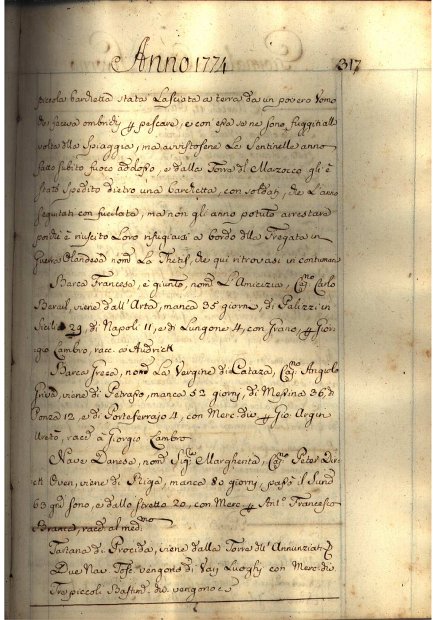 Anno 1774
317
piccola barchetta stata Lasciata a terra da un povero Uomo
pescare, e con essa se ne sono fuggiti alla
volta della Spiaggia, ma avvistosene Le Sentinelle anno
fatto subito fuoco addosso, e dalla Torre del Marzocco gli è
stato spedito dietro una barchetta, con soldati, che L'anno
seguitati con fucilate, ma non gli anno potuto arrestare
poiche è riuscito Loro rifugiarsi a bordo della Fregata in
Guerra Olandese nom. La Thetis, che qui ritrovasi in contumacia
Barca Francese, è giunto, nom. L'Amicizia, Cap.no Carlo
viene dall'Arta, manca 35 giorni, di Palizzi in
Sicilia 29, di Napoli 11, e di Longone 4, con Grano, p Gior
gio Lambro, racc. a
Barca Greca, nom. La Vergine di Cap.no Angiolo
viene di Petrasso, manca 52 giorni, di Messina 26, di
Ponza 12, e di Portoferrajo 4, con Merc. die p Gio
racc. a Giorgio Lambro
Nave Danese, nom. Sig. Margherita, Cap.no Peter
viene di Riga, manca 80 giorni, passò il Sund
63 sono, e dallo stretto 20, con Merc. p Ant.o Francesco
racc. al med.mo
Tartana di Procida, viene dalla Torre dell'Annunziata
Due Nav. Tosc. vengono di Varj Luoghi con Merc. die
Tre piccoli Bastim. che vengono